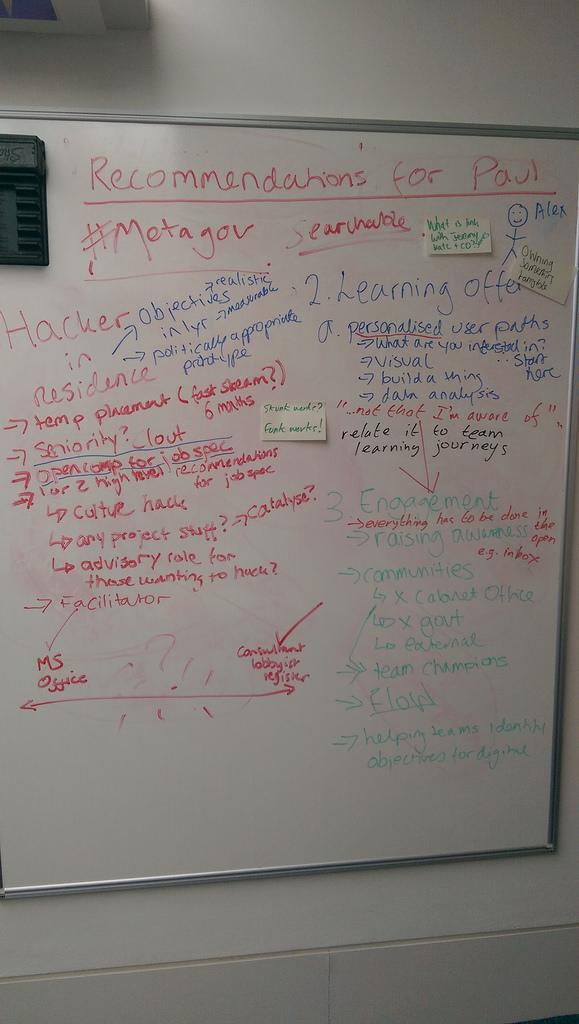 Recommendations for Paul
#Metagov
Searchable
What is link
with Jeremy
Kate + CO
Alex
Owning
Something
tangible
Hacker
in
residence
→ Objectives
in 1yr
→ realistic
→ measurable
→ politically appropriate
prototype
→ temp placement (fast stream?)
6 months
→ Seniority? Clout
→ Open comp for job spec
→ 1 or 2 high level recommendations
for job spec
↳ culture hack
↳ any project stuff? → Catalyse?
↳ advisory role for
those wanting to hack?
→ Facilitator
MS
Office
?
Consultant
lobbyist
register
Skunk works?
Funk works!
2. Learning offer
a. personalised user paths
→ What are you interested in?
→ visual
→ build a thing
→ data analysis
... Start
here
"...not that I'm aware of"
relate it to team
learning journeys
3. Engagement
→ everything has to be done in
the
open
e.g. inbox
→ raising awareness
→ communities
↳ X Cabinet Office
↳ X govt
↳ external
→ team champions
→ Flow
→ helping teams identify
objectives for digital